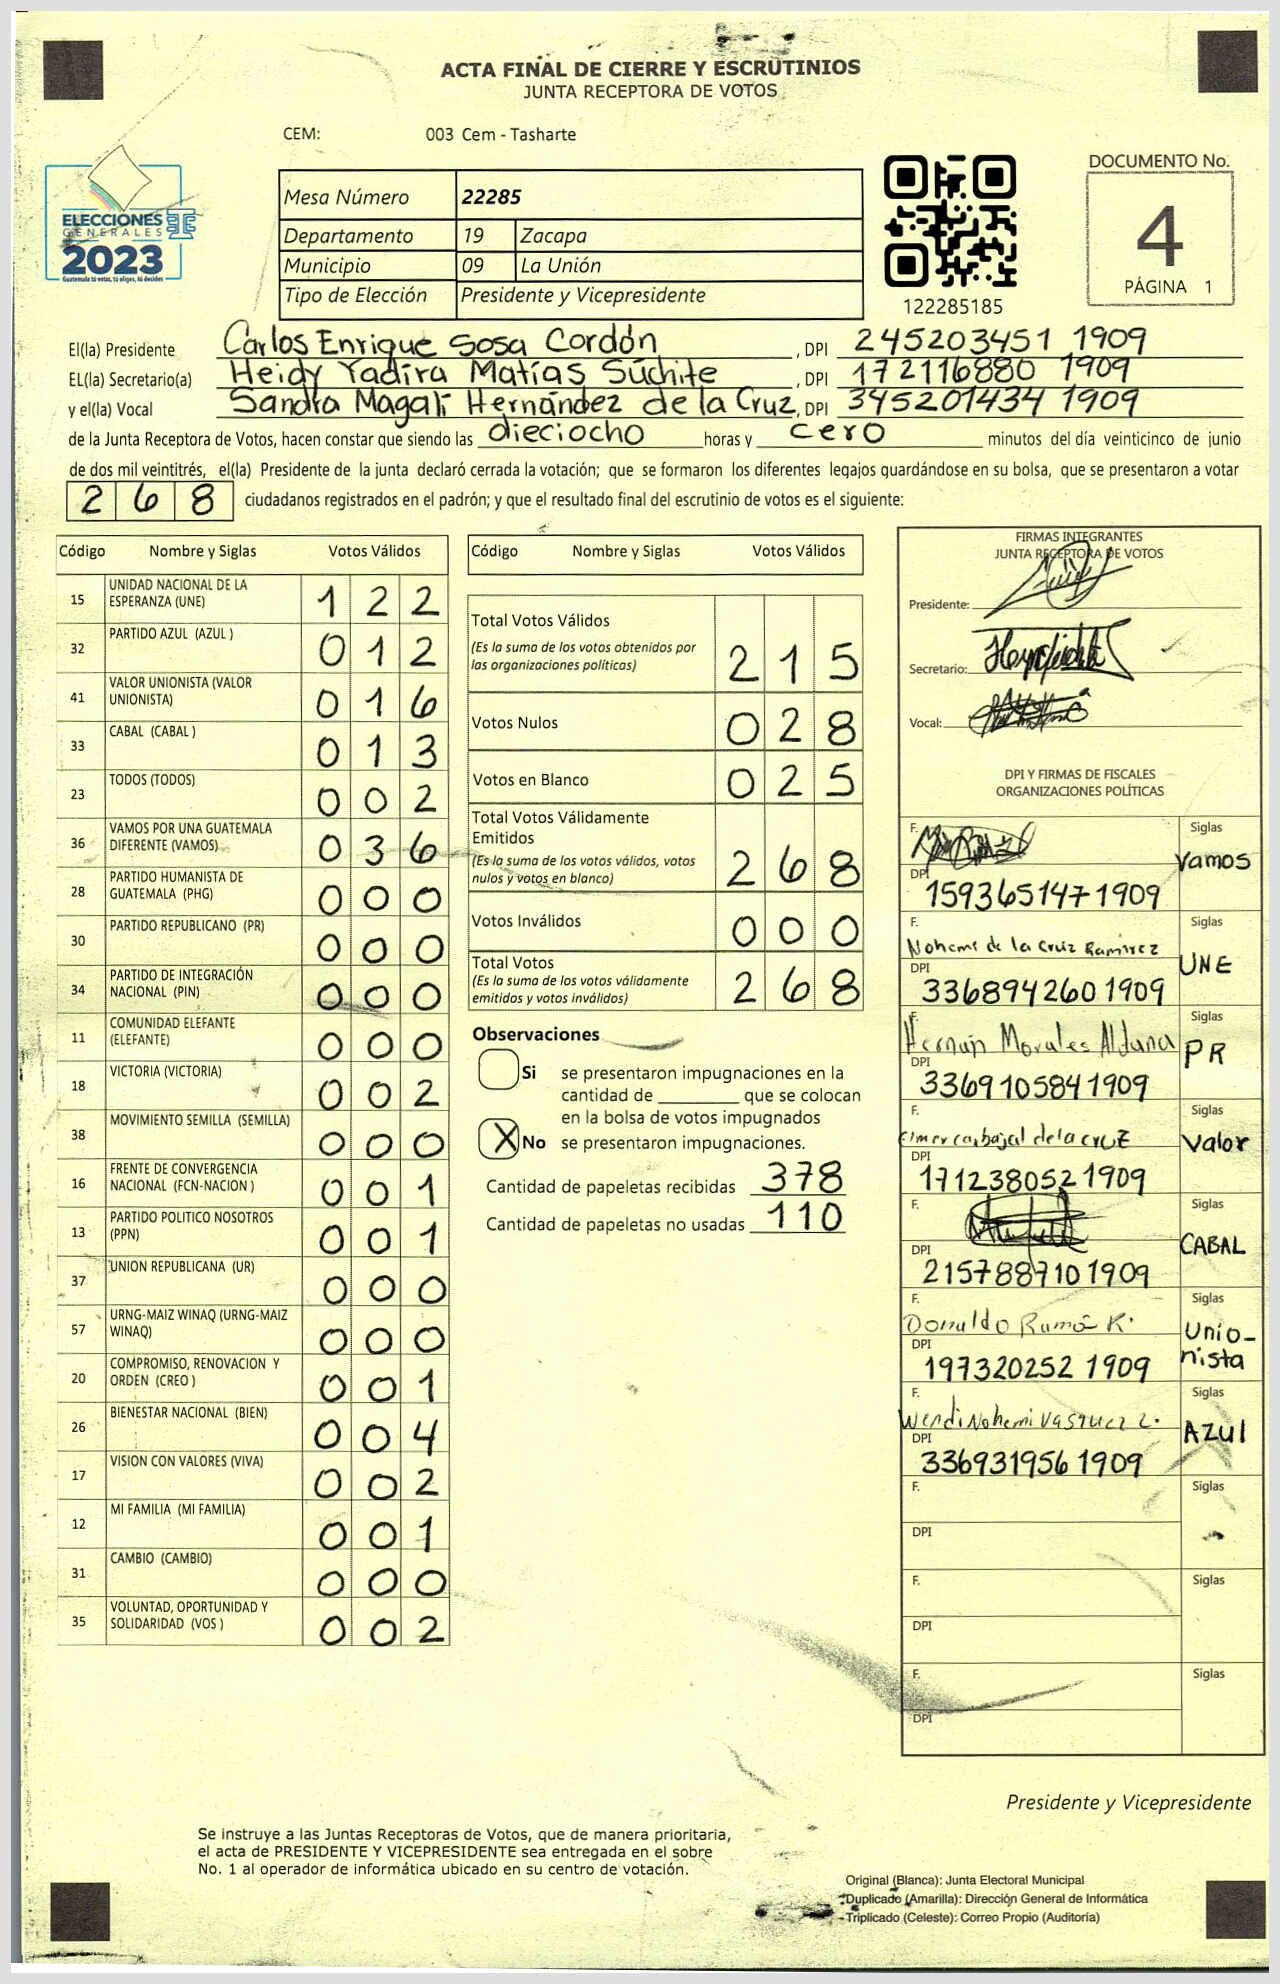 ACTA FINAL DE CIERRE Y ESCRUTINIOS
JUNTA RECEPTORA DE VOTOS
CEM: 003 Cem - Tasharte
ELECCIONES
GENERALES
2023
Guatemala tú votas, tú eliges, tú decides
Mesa Número 22285
Departamento 19 Zacapa
Municipio 09 La Unión
Tipo de Elección Presidente y Vicepresidente
122285185
DOCUMENTO No.
4
PÁGINA 1
El(la) Presidente Carlos Enrique Sosa Cordón, DPI 245203451 1909
EL(la) Secretario(a) Heidy Yadira Matías Súchite, DPI 172116880 1909
y el(la) Vocal Sandra Magalí Hernández de la Cruz, DPI 345201434 1909
de la Junta Receptora de Votos, hacen constar que siendo las dieciocho horas y cero minutos del día veinticinco de junio
de dos mil veintitrés, el(la) Presidente de la junta declaró cerrada la votación; que se formaron los diferentes legajos guardándose en su bolsa, que se presentaron a votar
268 ciudadanos registrados en el padrón; y que el resultado final del escrutinio de votos es el siguiente:
Código Nombre y Siglas Votos Válidos
15 UNIDAD NACIONAL DE LA ESPERANZA (UNE) 122
32 PARTIDO AZUL (AZUL ) 012
41 VALOR UNIONISTA (VALOR UNIONISTA) 016
33 CABAL (CABAL ) 013
23 TODOS (TODOS) 002
36 VAMOS POR UNA GUATEMALA DIFERENTE (VAMOS) 036
28 PARTIDO HUMANISTA DE GUATEMALA (PHG) 000
30 PARTIDO REPUBLICANO (PR) 000
34 PARTIDO DE INTEGRACIÓN NACIONAL (PIN) 000
11 COMUNIDAD ELEFANTE (ELEFANTE) 000
18 VICTORIA (VICTORIA) 002
38 MOVIMIENTO SEMILLA (SEMILLA) 000
16 FRENTE DE CONVERGENCIA NACIONAL (FCN-NACION ) 001
13 PARTIDO POLITICO NOSOTROS (PPN) 001
37 UNION REPUBLICANA (UR) 000
57 URNG-MAIZ WINAQ (URNG-MAIZ WINAQ) 000
20 COMPROMISO, RENOVACION Y ORDEN (CREO ) 001
26 BIENESTAR NACIONAL (BIEN) 004
17 VISION CON VALORES (VIVA) 002
12 MI FAMILIA (MI FAMILIA) 001
31 CAMBIO (CAMBIO) 000
35 VOLUNTAD, OPORTUNIDAD Y SOLIDARIDAD (VOS ) 002
Código Nombre y Siglas Votos Válidos
Total Votos Válidos 215
(Es la suma de los votos obtenidos por
las organizaciones políticas)
Votos Nulos 028
Votos en Blanco 025
Total Votos Válidamente
Emitidos 268
(Es la suma de los votos válidos, votos
nulos y votos en blanco)
Votos Inválidos 000
Total Votos 268
(Es la suma de los votos válidamente
emitidos y votos inválidos)
Observaciones
Si se presentaron impugnaciones en la
cantidad de ________ que se colocan
en la bolsa de votos impugnados
X No se presentaron impugnaciones.
Cantidad de papeletas recibidas 378
Cantidad de papeletas no usadas 110
FIRMAS INTEGRANTES
JUNTA RECEPTORA DE VOTOS
Presidente:
Secretario:
Vocal:
DPI Y FIRMAS DE FISCALES
ORGANIZACIONES POLÍTICAS
F. Siglas Vamos
DPI 159365147 1909
F. Nohemi de la Cruz Ramirez Siglas UNE
DPI 336894260 1909
F. Hernán Morales Aldana Siglas PR
DPI 336910584 1909
F. Elmer carbajal de la cruz Siglas Valor
DPI 171238052 1909
F. Siglas CABAL
DPI 215788710 1909
F. Donaldo Ramón R. Siglas Unio-
nista
DPI 197320252 1909
F. Wendi Nohemi Vasquez L. Siglas AZUL
DPI 336931956 1909
F. Siglas
DPI
F. Siglas
DPI
F. Siglas
DPI
Presidente y Vicepresidente
Se instruye a las Juntas Receptoras de Votos, que de manera prioritaria,
el acta de PRESIDENTE Y VICEPRESIDENTE sea entregada en el sobre
No. 1 al operador de informática ubicado en su centro de votación.
Original (Blanca): Junta Electoral Municipal
Duplicado (Amarilla): Dirección General de Informática
Triplicado (Celeste): Correo Propio (Auditoría)